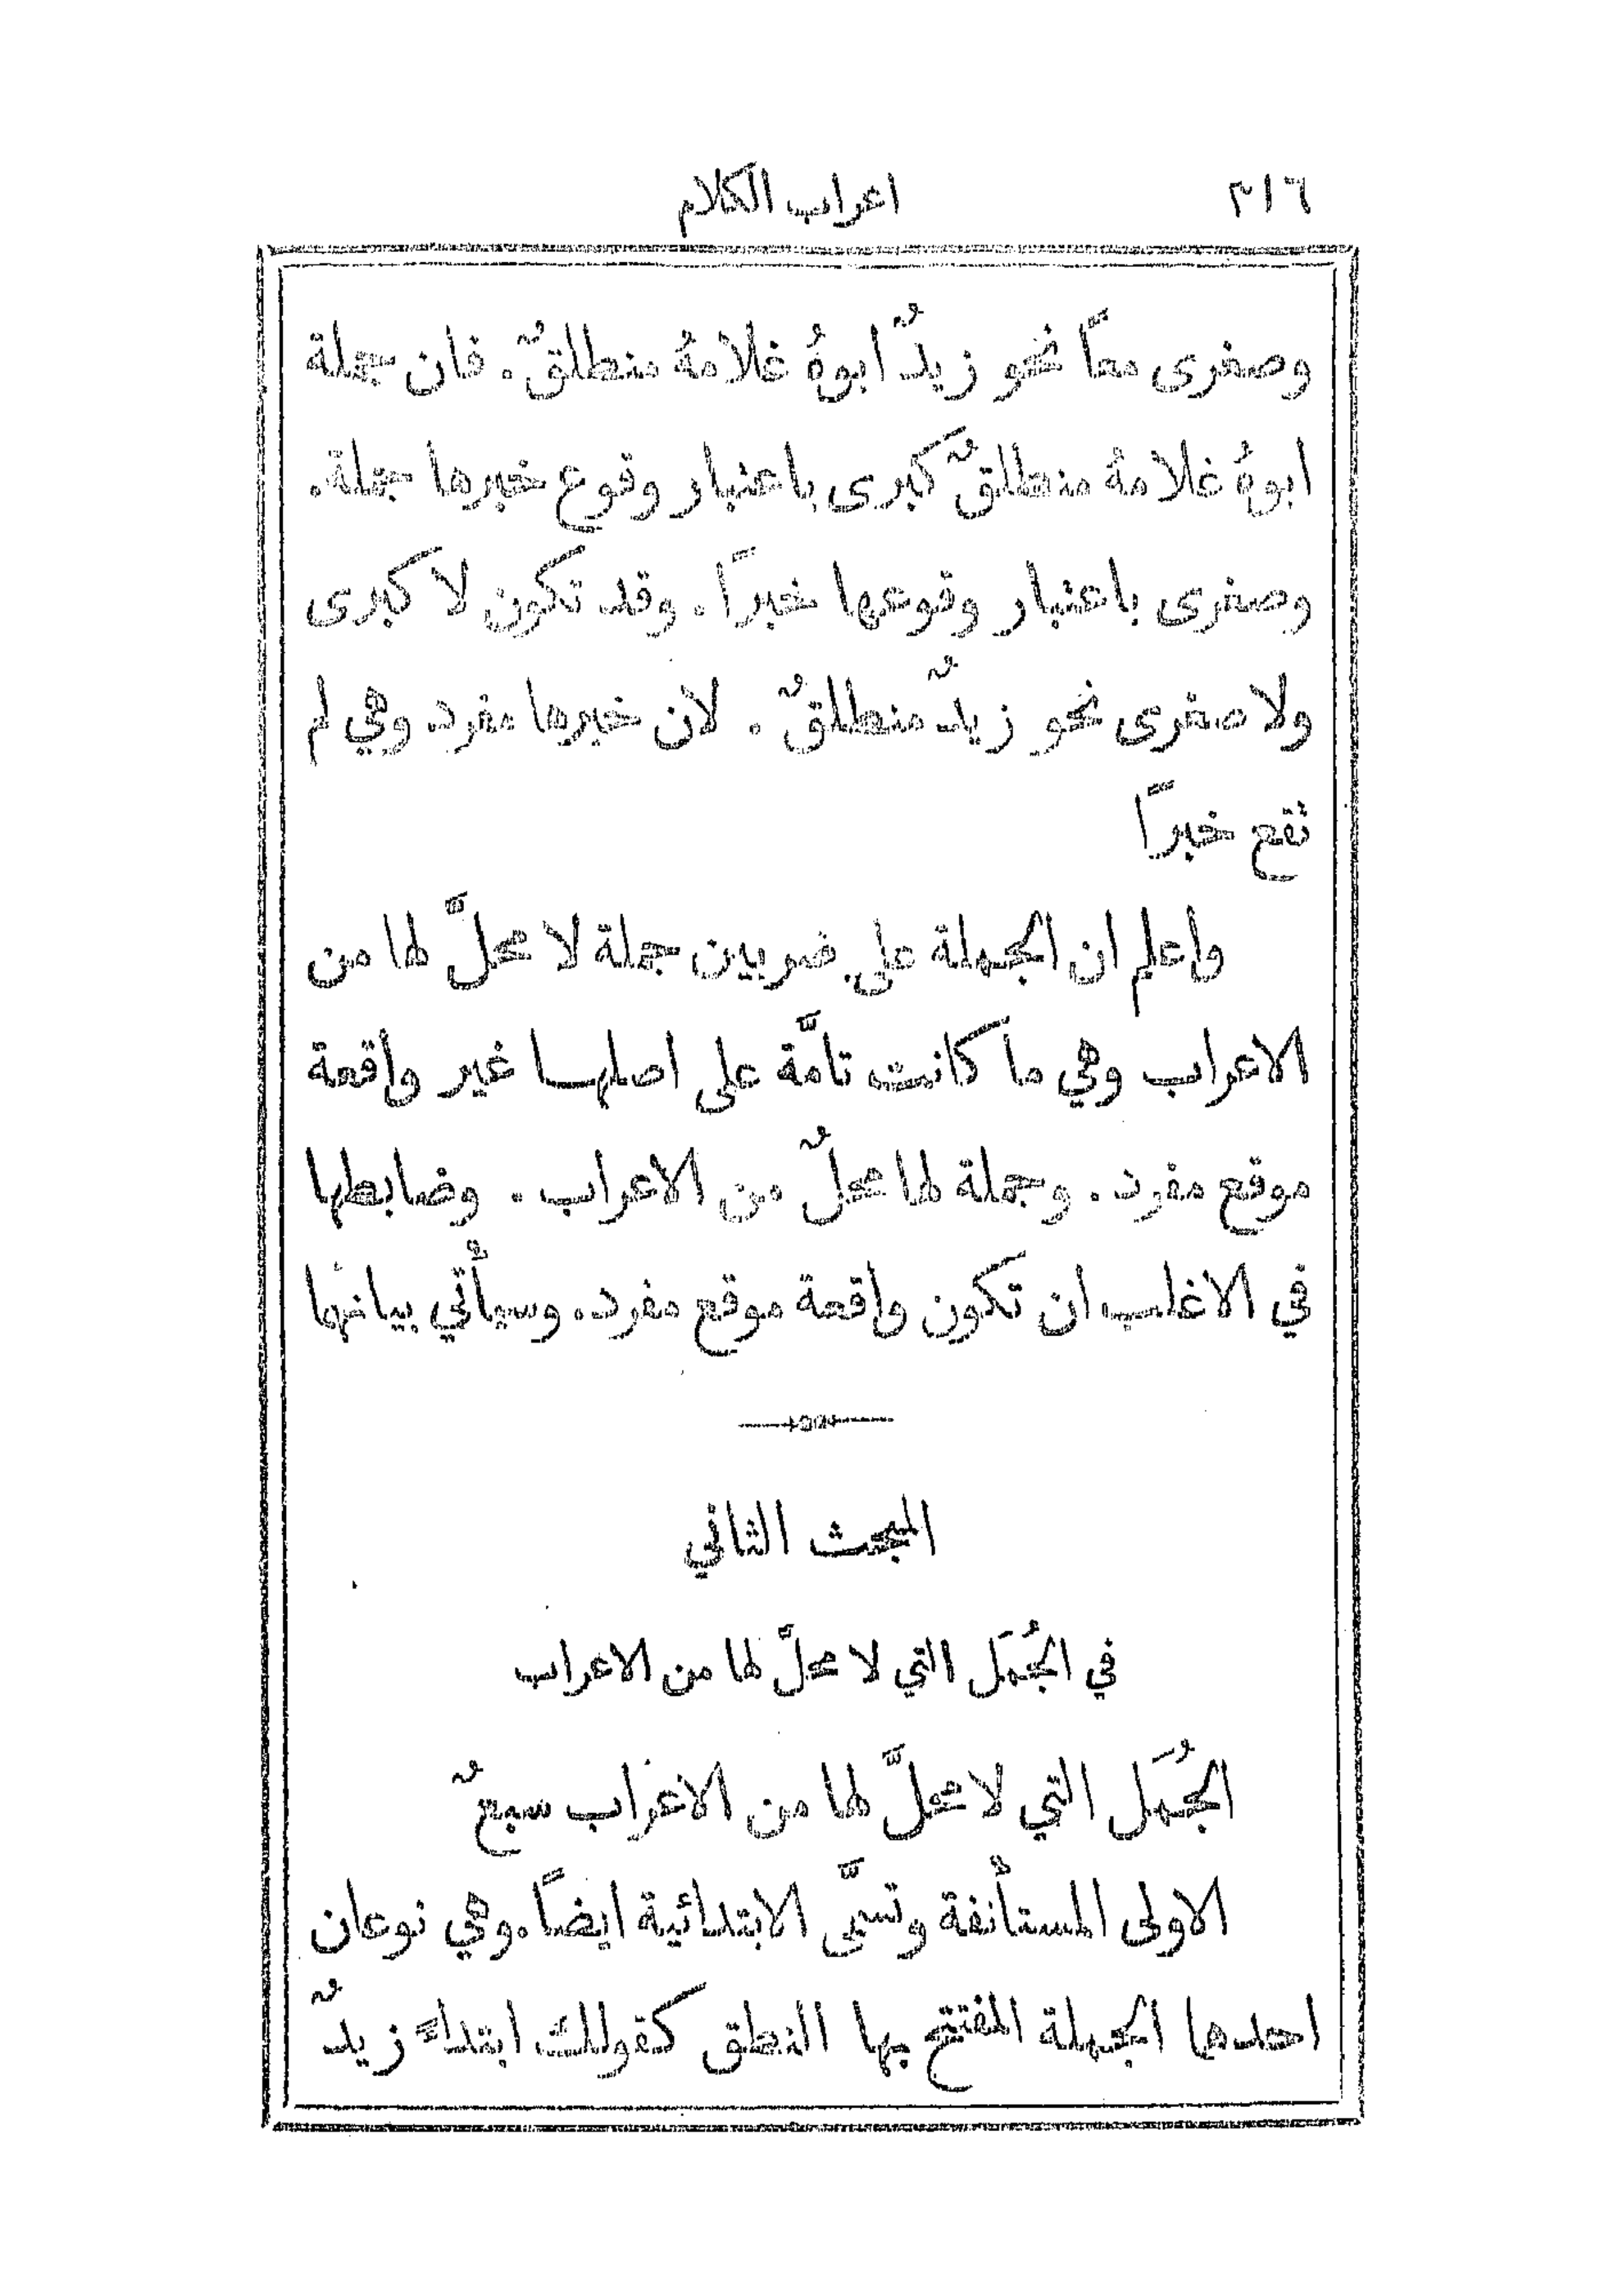 ٣١٦ اعراب الكلام
وصغرى معاً نحو زيدٌ ابوهُ غلامهُ منطلقٌ. فان جملة
ابوهُ غلامهُ منطلقٌ كبرى باعتبار وقوع خبرها جملة.
وصغرى باعتبار وقوعها خبراً. وقد تكون لا كبرى
ولا صغرى نحو زيدٌ منطلقٌ. لان خبرها مفرد وهي لم
تقع خبراً
واعلم ان الجملة على ضربين جملة لا محلَّ لها من
الاعراب وهي ما كانت تامَّة على اصلها غير واقعة
موقع مفرد. وجملة لها محلٌّ من الاعراب. وضابطها
في الاغلب ان تكون واقعة موقع مفرد. وسيأْتي بيانها
المبحث الثاني
في الجُمَل التي لا محلَّ لها من الاعراب
الجُمَل التي لا محلَّ لها من الاعراب سبعٌ
الاولى المستأْنفة وتسمَّى الابتدائية ايضاً. وهي نوعان
احدها الجملة المفتتح بها النطق كقولك ابتداءً زيدٌ